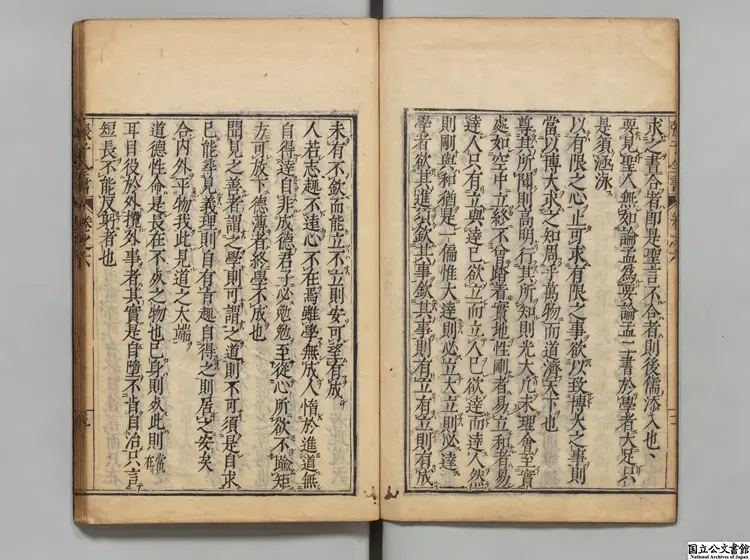 求之書合者即是聖言不合者則後儒添入也
要見聖人無如論孟為要論孟二書於學者大足只
是須涵泳
以有限之心止可求有限之事欲以致博大之事則
當以博大求之知周乎萬物而道濟天下也
尊其所聞則高明行其所知則光大凡未理會至實
處如空中立終不曾踏着實地性剛者易立和者易
達人只有立與達己欲立而立人己欲達而達人然
則剛與和猶是一偏惟大達則必立大立則必達
學者欲其進須欽其事欽其事則有立有立則有成
未有不欽而能立不立則安可望有成
人若志趣不遠心不在焉雖學無成人惰於進道無
自得達自非成德君子必勉勉至從心所欲不踰矩
方可放下德薄者終學不成也
聞見之善者謂之學則可謂之道則不可須是自求
己能尋見義理則自有旨趣自得之則居之安矣
合內外平物我此見道之大端
道德性命是長在不死之物也己身則死此則常在
耳目役於外攬外事者其實是自墮不肯自治只言
短長不能反躬者也
張子全書 卷之六
国立公文書館
National Archives of Japan